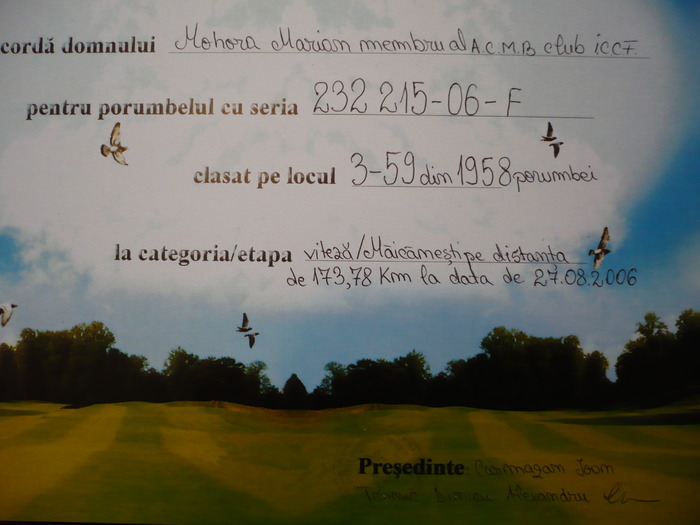 cordă domnului Mohora Marian membru al A.C.M.B club ICCF.
pentru porumbelul cu seria 232 215-06-F
clasat pe locul 3-59 din 1958 porumbei
la categoria/etapa viteză/Măicămeşti pe distanta
de 173,78 Km la data de 27.08.2006
Preşedinte Caramagam Ioan
Alexandru